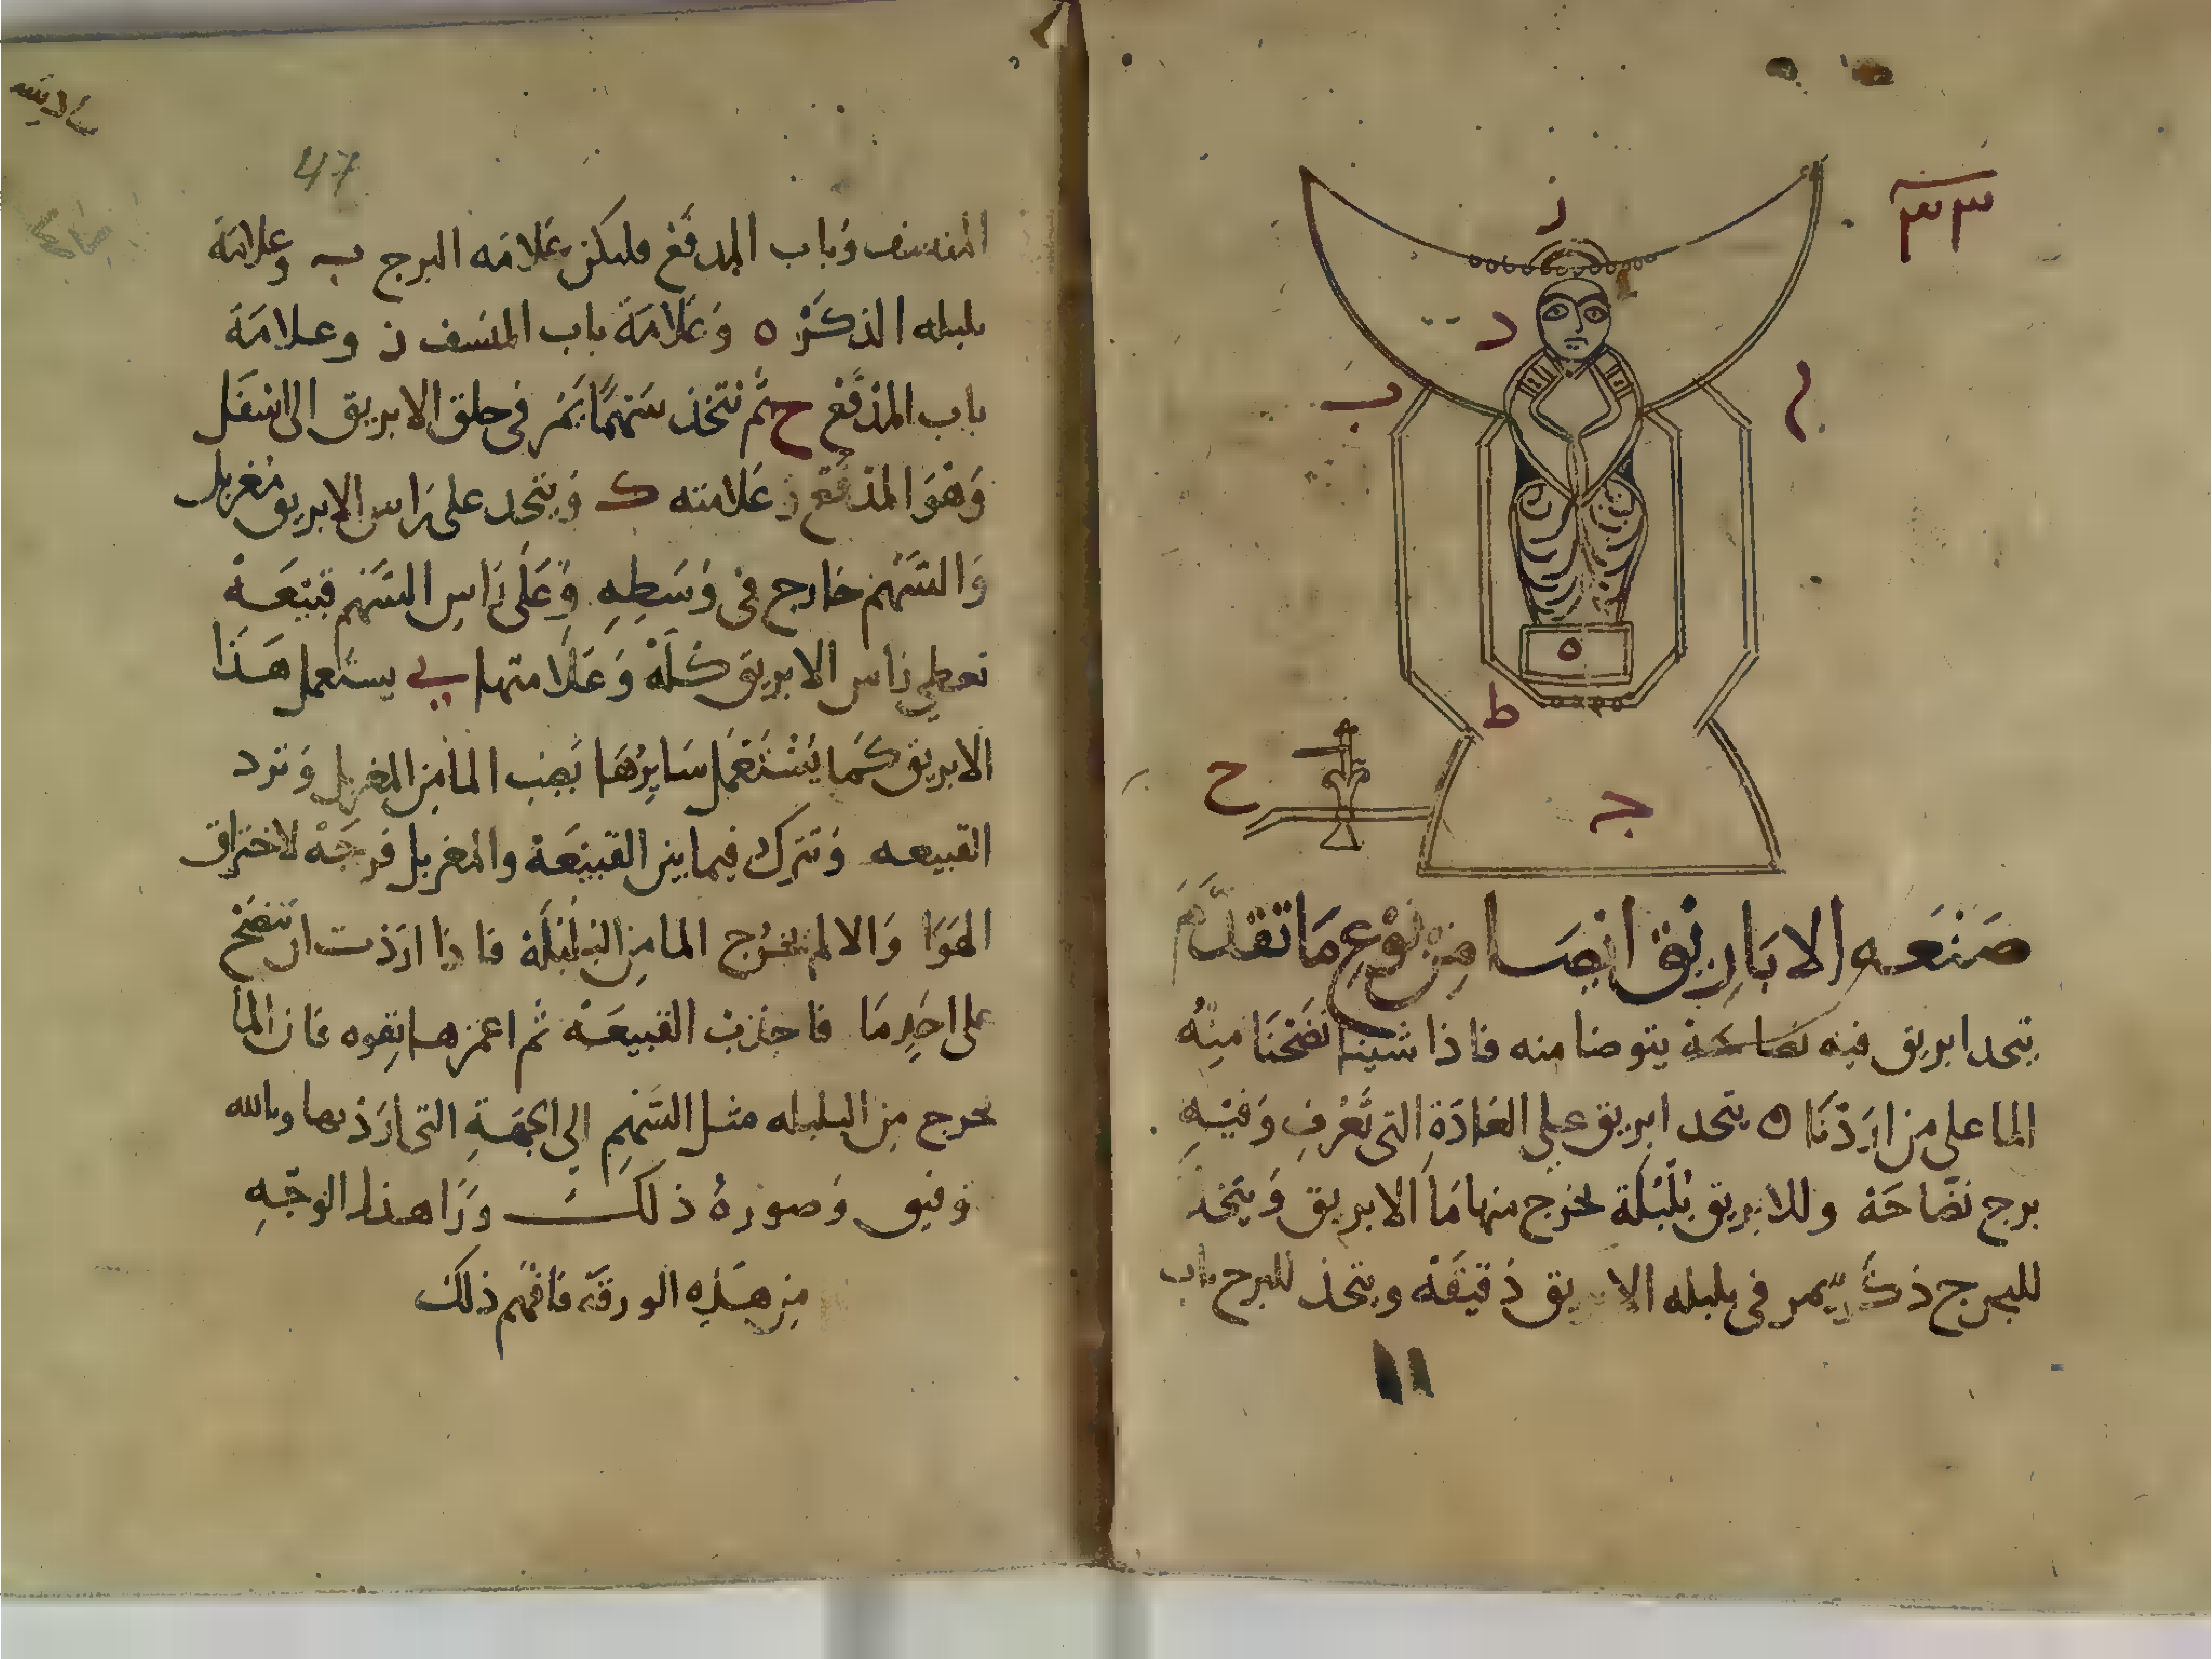 ٣٣
ز
د
ب
ه
ط
ح
ج
صَنْعَه الابَارِيق ايضا مِن نوْعِ مَا تقدَّم
يتخد ابريق فيه نضاحة يتوضا منه فاذا شينا نضَحْنَا منهُ
الما على من اردْنَا ه يتخد ابريق على العَادَةِ التى تُعْرف وَفيهِ
برج نضَّاحَة وللابريق بُلْبُلَة يخرج منها مَا الابريق وَيتخد
للبرج ذكَر يمر فى بلبله الابريق دَقيقَة ويتخذ للبرج باب
47
المنسف وَباب المدفَع وليكن عَلامَه البرج ب وعلامَة
بلبله الذكَر ه وَعَلامَة باب المنسف ز وعلامَة
باب المدفَع ح ثم نتخذ سَهمًا يَمُر فى حلق الابريق الى اسْفَل
وَهوَ المدفَع علامته ك وَيتخد على رَاس الابريق مُغربل
وَالسَّهْم خارج فى وَسَطِهِ وَعَلَى رَاسِ السَّهْم قبيعَة
تعطى راس الابريق كلَهْ وَعَلامتها ى يستعمل هَذَا
الابريق كَمَا يُسْتَعْمَل سَايِرُهَا يَصُب الما من المغربل وَترد
القبيعه وَتترك فيما بين القبيعَة والمغربل فرجَهْ لاختراق
الهَوَا وَالا لم يخرُج الما من البلبلَة فا ذا اردْت ان تنضَح
على احَدٍ مَا فا جذبْ القبيعَة ثم اغمزها بقوه فان الما
يخرج مِن البلبله مثل السَّهْمِ الى الجهَةِ التى اردْ بها وبالله
توفيق وَصورَةُ ذلكَ وَرَا هذا الوَجْهِ
من هَذِه الورقَة فافْهم ذلكَ